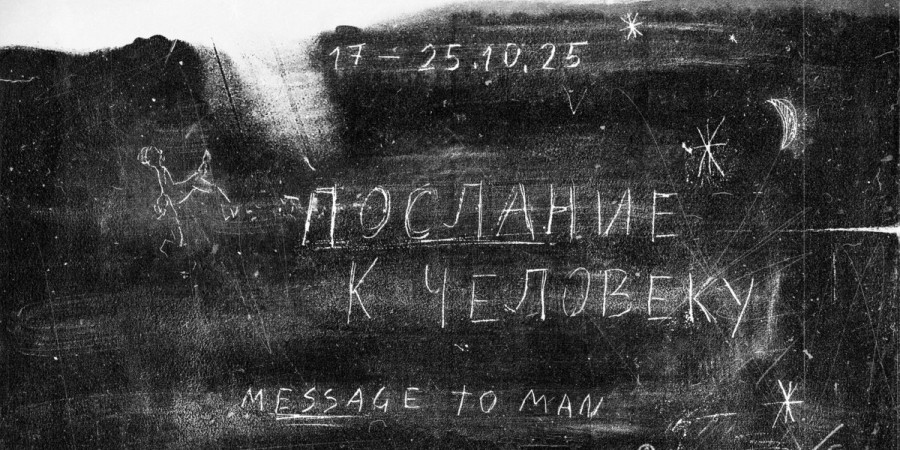 17 – 25.10.25
ПОСЛАНИЕ
К ЧЕЛОВЕКУ
MESSAGE TO MAN